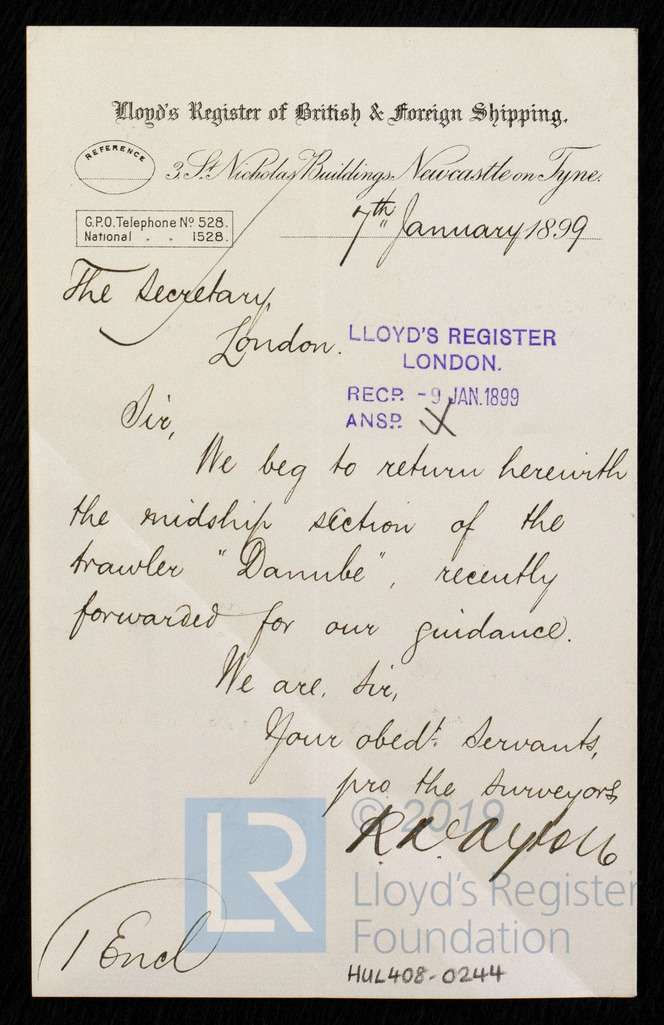 Lloyd's Register of British & Foreign Shipping.
REFERENCE
3, St. Nicholas Buildings, Newcastle on Tyne.
G.P.O. Telephone No 528.
National " " 1528.
7th January 1899
The Secretary,
London.
LLOYD'S REGISTER
LONDON.
RECD. -9 JAN. 1899
ANSD.
Sir,
We beg to return herewith
the midship section of the
trawler "Danube", recently
forwarded for our guidance.
We are, Sir,
Your obedt. Servants,
pro the Surveyors,
© 2019
LR
Lloyd's Register
Foundation
1 Encl
HUL408-0244